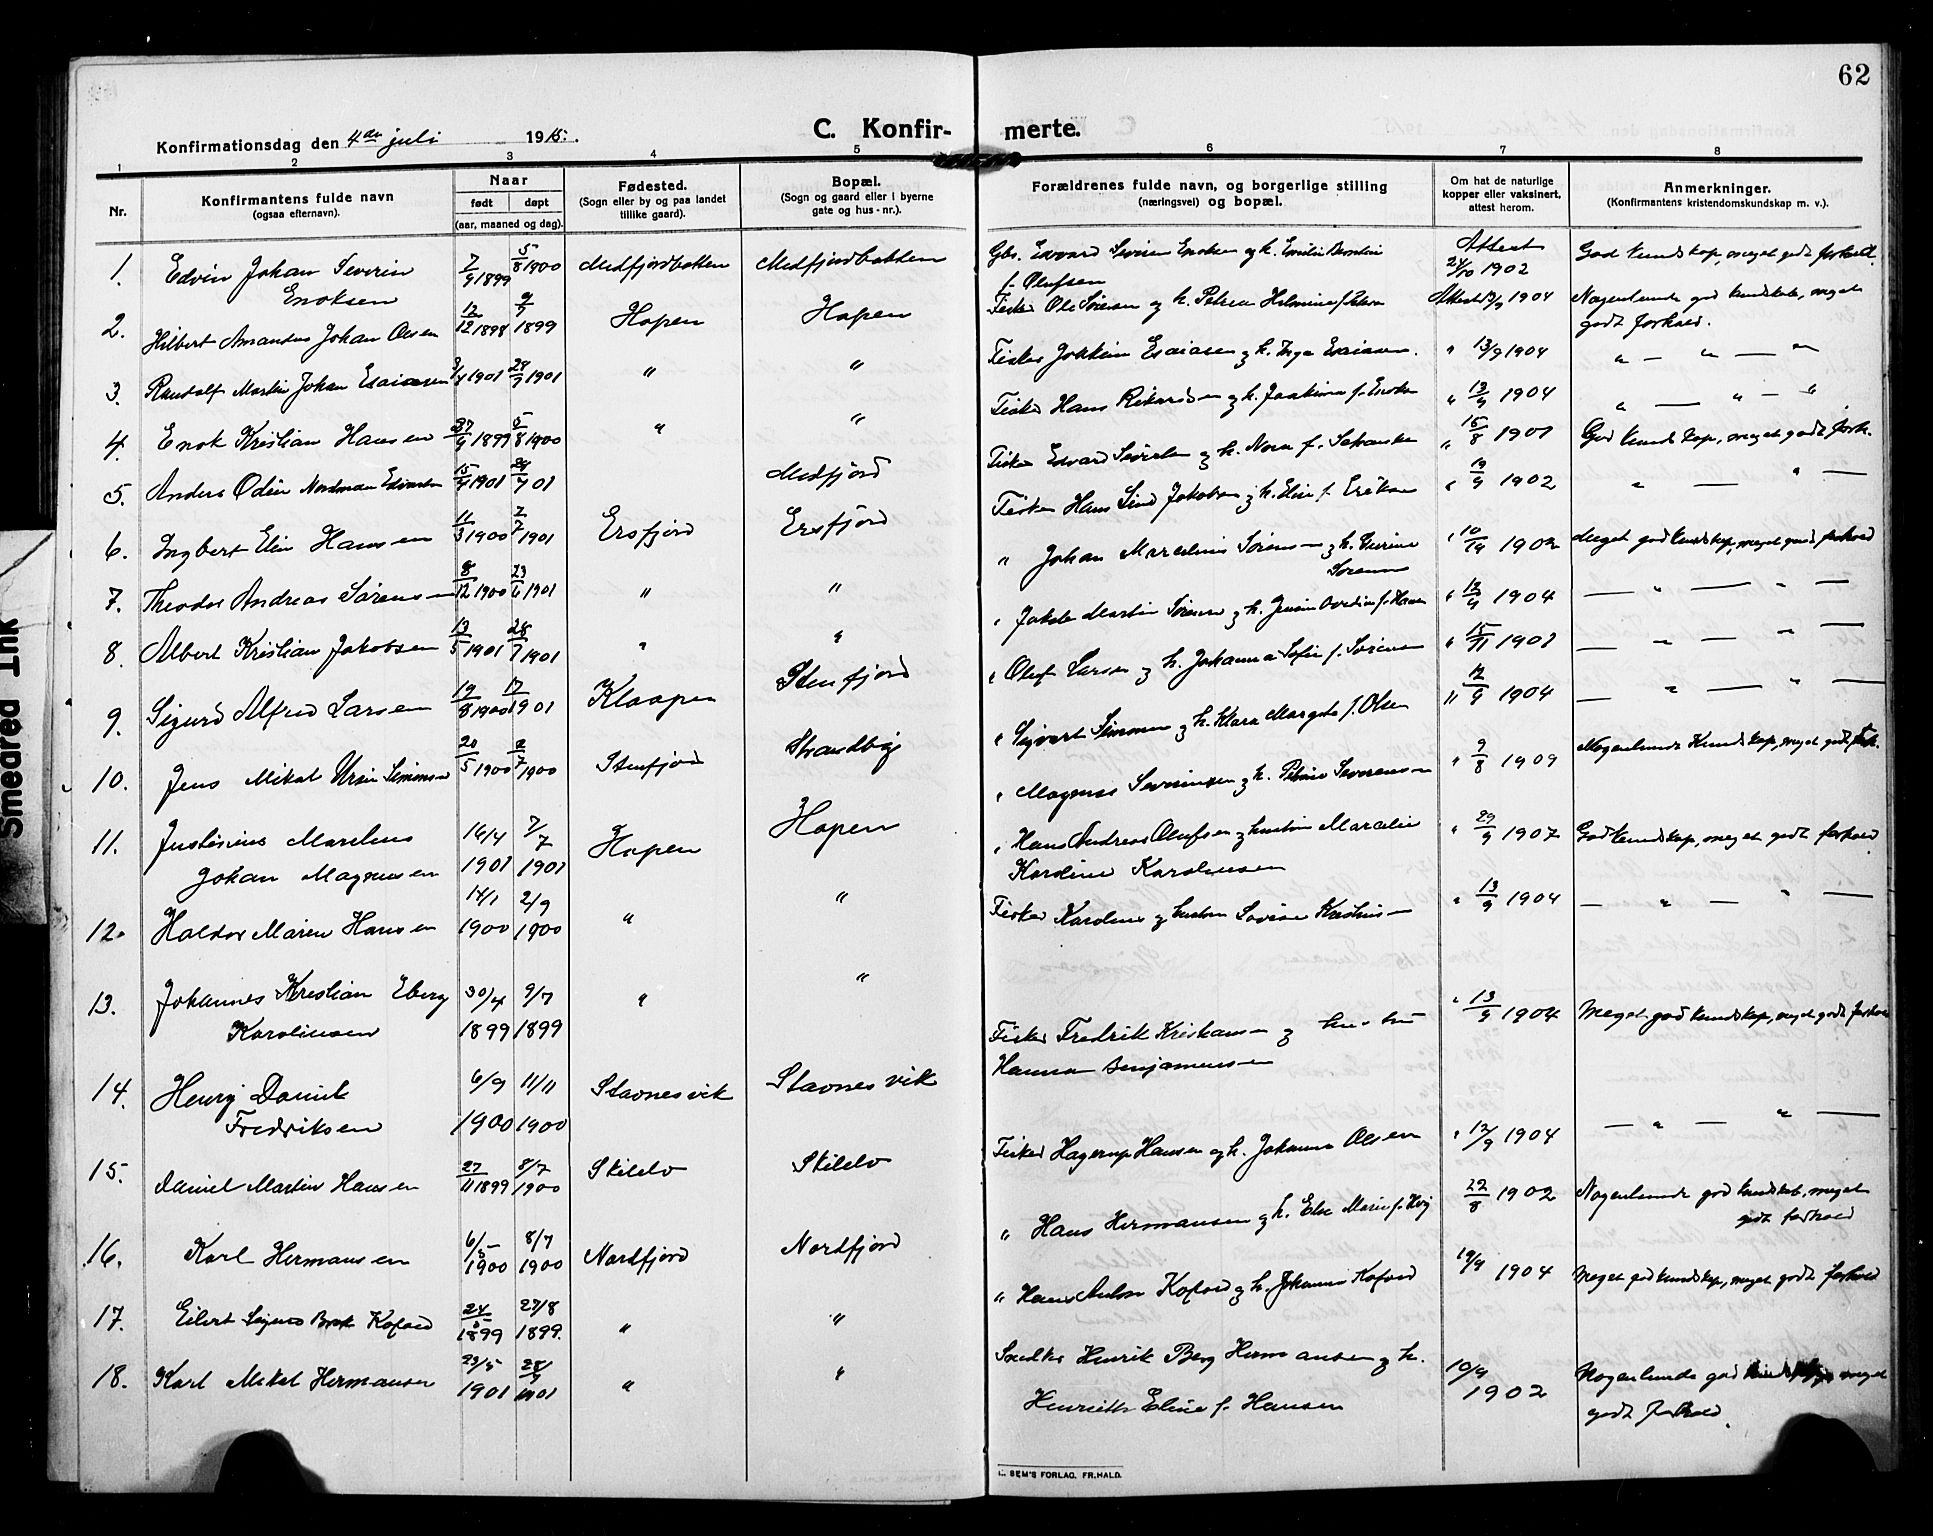 62
Konfirmationsdag den 4de juli 1915.
C. Konfir- merte.
1 2 3 4 5 6 7 8
Nr.
Konfirmantens fulde navn
(ogsaa efternavn).
Naar
født døpt
(aar, maaned og dag).
Fødested.
(Sogn eller by og paa landet
tillike gaard).
Bopæl.
(Sogn og gaard eller i byerne
gate og hus-nr.).
Forældrenes fulde navn, og borgerlige stilling
(næringsvei) og bopæl.
Om hat de naturlige
kopper eller vaksinert,
attest herom.
Anmerkninger.
(Konfirmantens kristendomskundskap m. v.).
1. Edvin Johan Severin 7/9 1899 5/8 1900 Medfjordbotten Medfjordbotten Gbr. Edvard Severin Enoksen og h. Emilie Attest 24/10 1902 God kundskap, meget godt forhold.
Enoksen f. Olufsen
2. Hilbert Amandus Johan Olsen 12/12 1898 9/7 1899 Hopen Hopen Fisker Ole Sørensen og h. Petrea Helmine f. Attest 13/9 1904 Nogenlunde god kundskab, meget
godt forhold.
3. Randolf Martin Johan Esaiasen 3/4 1901 28/7 1901 " " Fisker Jokkim Esaiasen og h. Inga Esaiasen. " 13/9 1904 " — " — "
4. Enok Kristian Hansen 27/9 1899 5/8 1900 " " Fisker Hans Rikardsen og h. Joakima f. Enoksen " 13/9 1904 " — " — "
5. Anders Odin Nordman Edvardsen 15/4 1901 28/7 01 Medfjord Fisker Edvard Severin og h. Nora f. " 15/8 1901 God kundskap, meget godt forh.
6. Ingbert Elin Hansen 11/3 1900 7/7 1901 Ersfjord Ersfjord Fisker Hans Lind Jakobsen og h. Elise f. Eriksen " 19/9 1902 " — " —
7. Theodor Andreas Sørensen 8/12 1900 23/6 1901 " " " Johan Marelius Sørensen og h. " 10/9 1902 Meget god kundskap, meget godt forhold
Sørensen
8. Albert Kristian Jakobsen 13/5 1901 28/7 1901 " " " Jakob Martin Sørensen og h. Jensine f. Hansen " 13/9 1904 — " — " —
9. Sigurd Alfred Larsen 19/8 1900 1901 Klaapen Stenfjord " Oluf Larsen og h. Johanna Sofie f. Sørensen " 15/11 1901 — " — " —
10. Jens Mikal Ursin Simonsen 20/5 1900 8/7 1900 Stenfjord Strandby " Sigvart Simonsen og h. Klara Margrete f. Olsen " 12/9 1904 — " — " —
11. Justinius Marelius 14/4 7/7 Hopen Hopen " Magnus Severinsen og h. Petrine Severinsen " 9/8 1909 Nogenlunde kundskap, meget godt forh.
Johan Magnussen 1901 1901
12. Haldor Maren Hansen 14/1 1900 2/9 1900 " " " Hans Andreas Olufsen og hustru Marcelie " 29/9 1907 God kundskap, meget godt forhold
Kardine Karoliusen
13. Johannes Kristian Eberg 30/4 9/7 " " Fisker Karolius og hustru Kristins— " 13/9 1904 — " — " —
Karoliusen 1899 1899
14. Henry Daniel 6/9 11/11 Stavnesvik Stavnesvik Fisker Fredrik Kristiansen og hustru " 13/9 1904 Meget god kundskap, meget godt forhold
Fredriksen 1900 1900 Hanna Benjaminsen
15. Daniel Martin Hansen 27/11 1899 8/7 1900 Skilelv Skilelv Fisker Hagerup Hansen og h. Johanna Olsen " 12/9 1904 — " — " —
16. Karl Hermansen 6/5 1900 8/7 1900 Nordfjord Nordfjord " Hans Hermansen og h. Else Marie f. 22/8 1902 Nogenlunde god kundskab, meget
godt forhold
17. Eilert Kofoed 24/5 1899 27/8 1899. " " " Hans Anton Kofoed og h. Johanna Kofoed 19/9 1904 Meget god kundskap, meget godt forhold
18. Karl Mikal Hermansen 23/5 1901 28/7 1901 " " Snedker Henrik Berg Hermansen og h. 10/9 1902 Nogenlunde god meget
Henriette Eline f. Hansen godt forhold.
SEM'S FORLAG, FR.HALD.
Smeared Ink